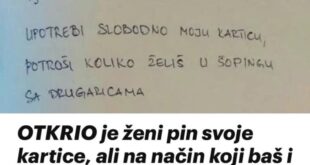 UPOTREBI SLOBODNO MOJU KARTICU,
POTROŠI KOLIKO ŽELIŠ U ŠOPINGU
SA DRUGARICAMA
OTKRIO je ženi pin svoje
kartice, ali na način koji baš i